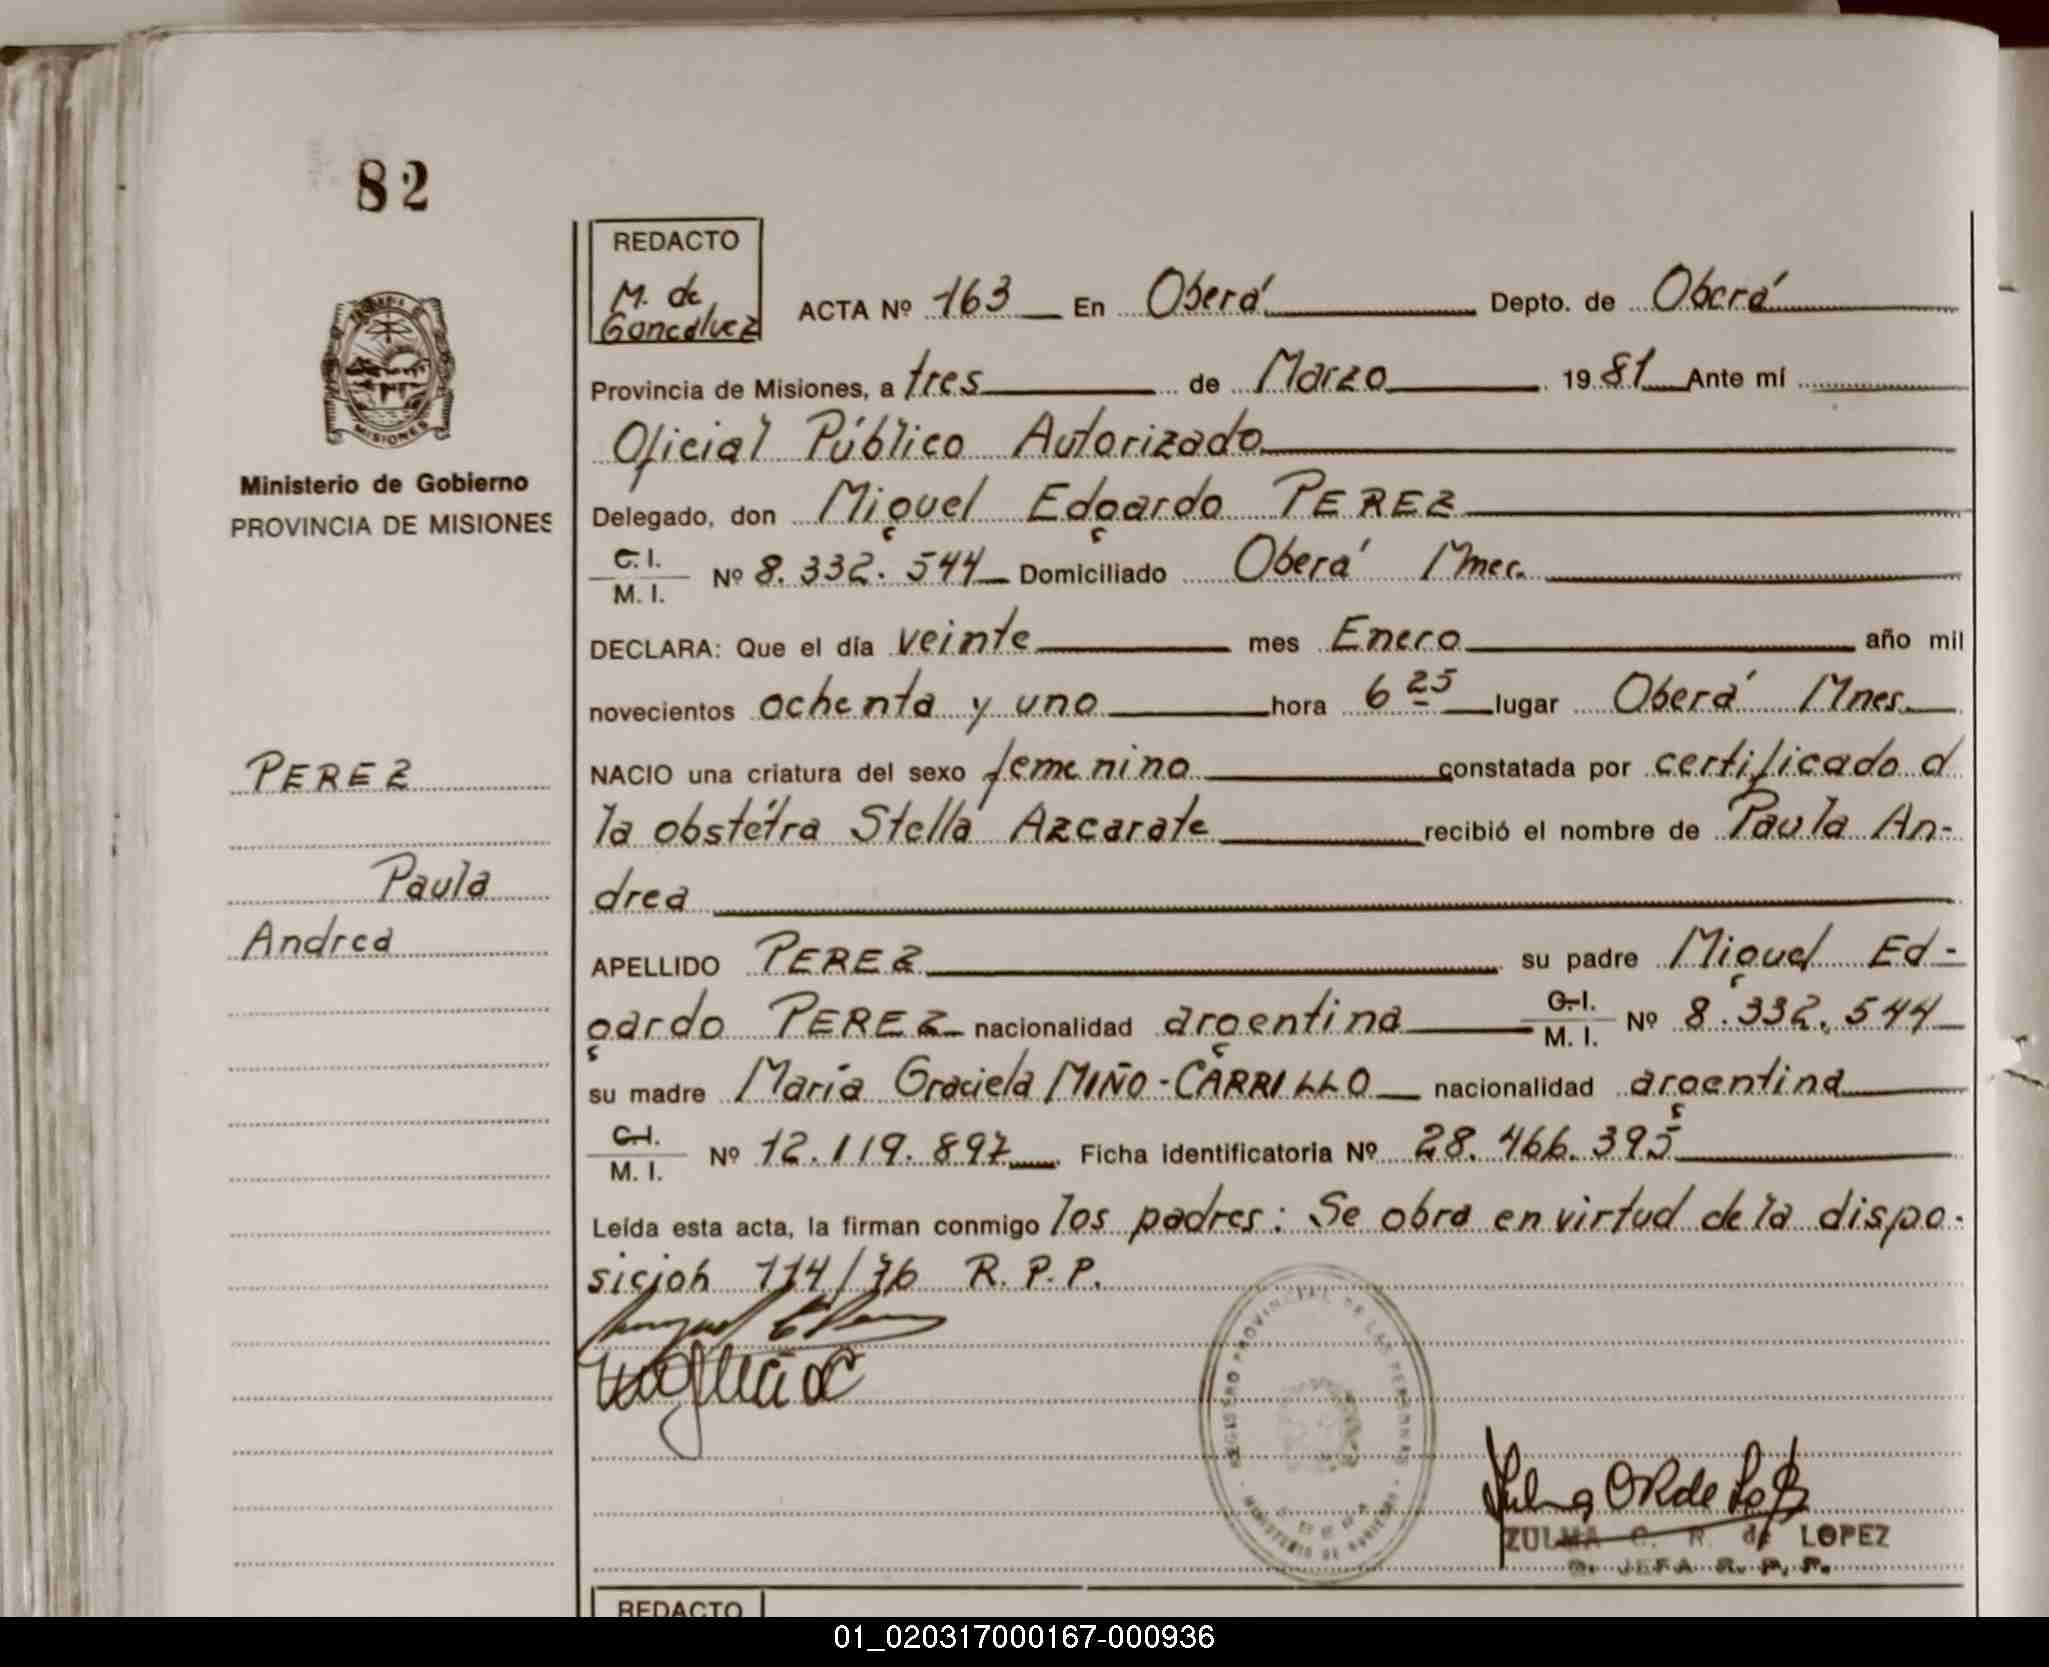 82
REDACTO
M. de
Goncalvez
ACTA Nº 163 En Oberá Depto. de Oberá
Provincia de Misiones, a tres de Marzo 1981 Ante mí
Oficial Público Autorizado
Delegado, don Miguel Edgardo PEREZ
C. I.
M. I. Nº 8.332.544 Domiciliado Oberá Mnes.
DECLARA: Que el día veinte mes Enero año mil
novecientos ochenta y uno hora 6 25 lugar Oberá Mnes.
NACIO una criatura del sexo femenino constatada por certificado d
la obstétra Stella Azcarate recibió el nombre de Paula An-
drea
APELLIDO PEREZ su padre Miguel Ed-
gardo PEREZ nacionalidad argentina C. I. M. I. Nº 8.332.544
su madre María Graciela MIÑO-CARRILLO nacionalidad argentina
C. I.
M. I. Nº 12.119.897 Ficha identificatoria Nº 28.466.395
Leída esta acta, la firman conmigo los padres: Se obra en virtud de la dispo-
sición 114/76 R.P.P.
MISIONES
Ministerio de Gobierno
PROVINCIA DE MISIONES
PEREZ
Paula
Andrea
REGISTRO PROVINCIAL DE LAS PERSONAS
MINISTERIO DE GOBIERNO
ZULMA C. R. de LOPEZ
JEFA R. P. P.
REDACTO
01_020317000167-000936